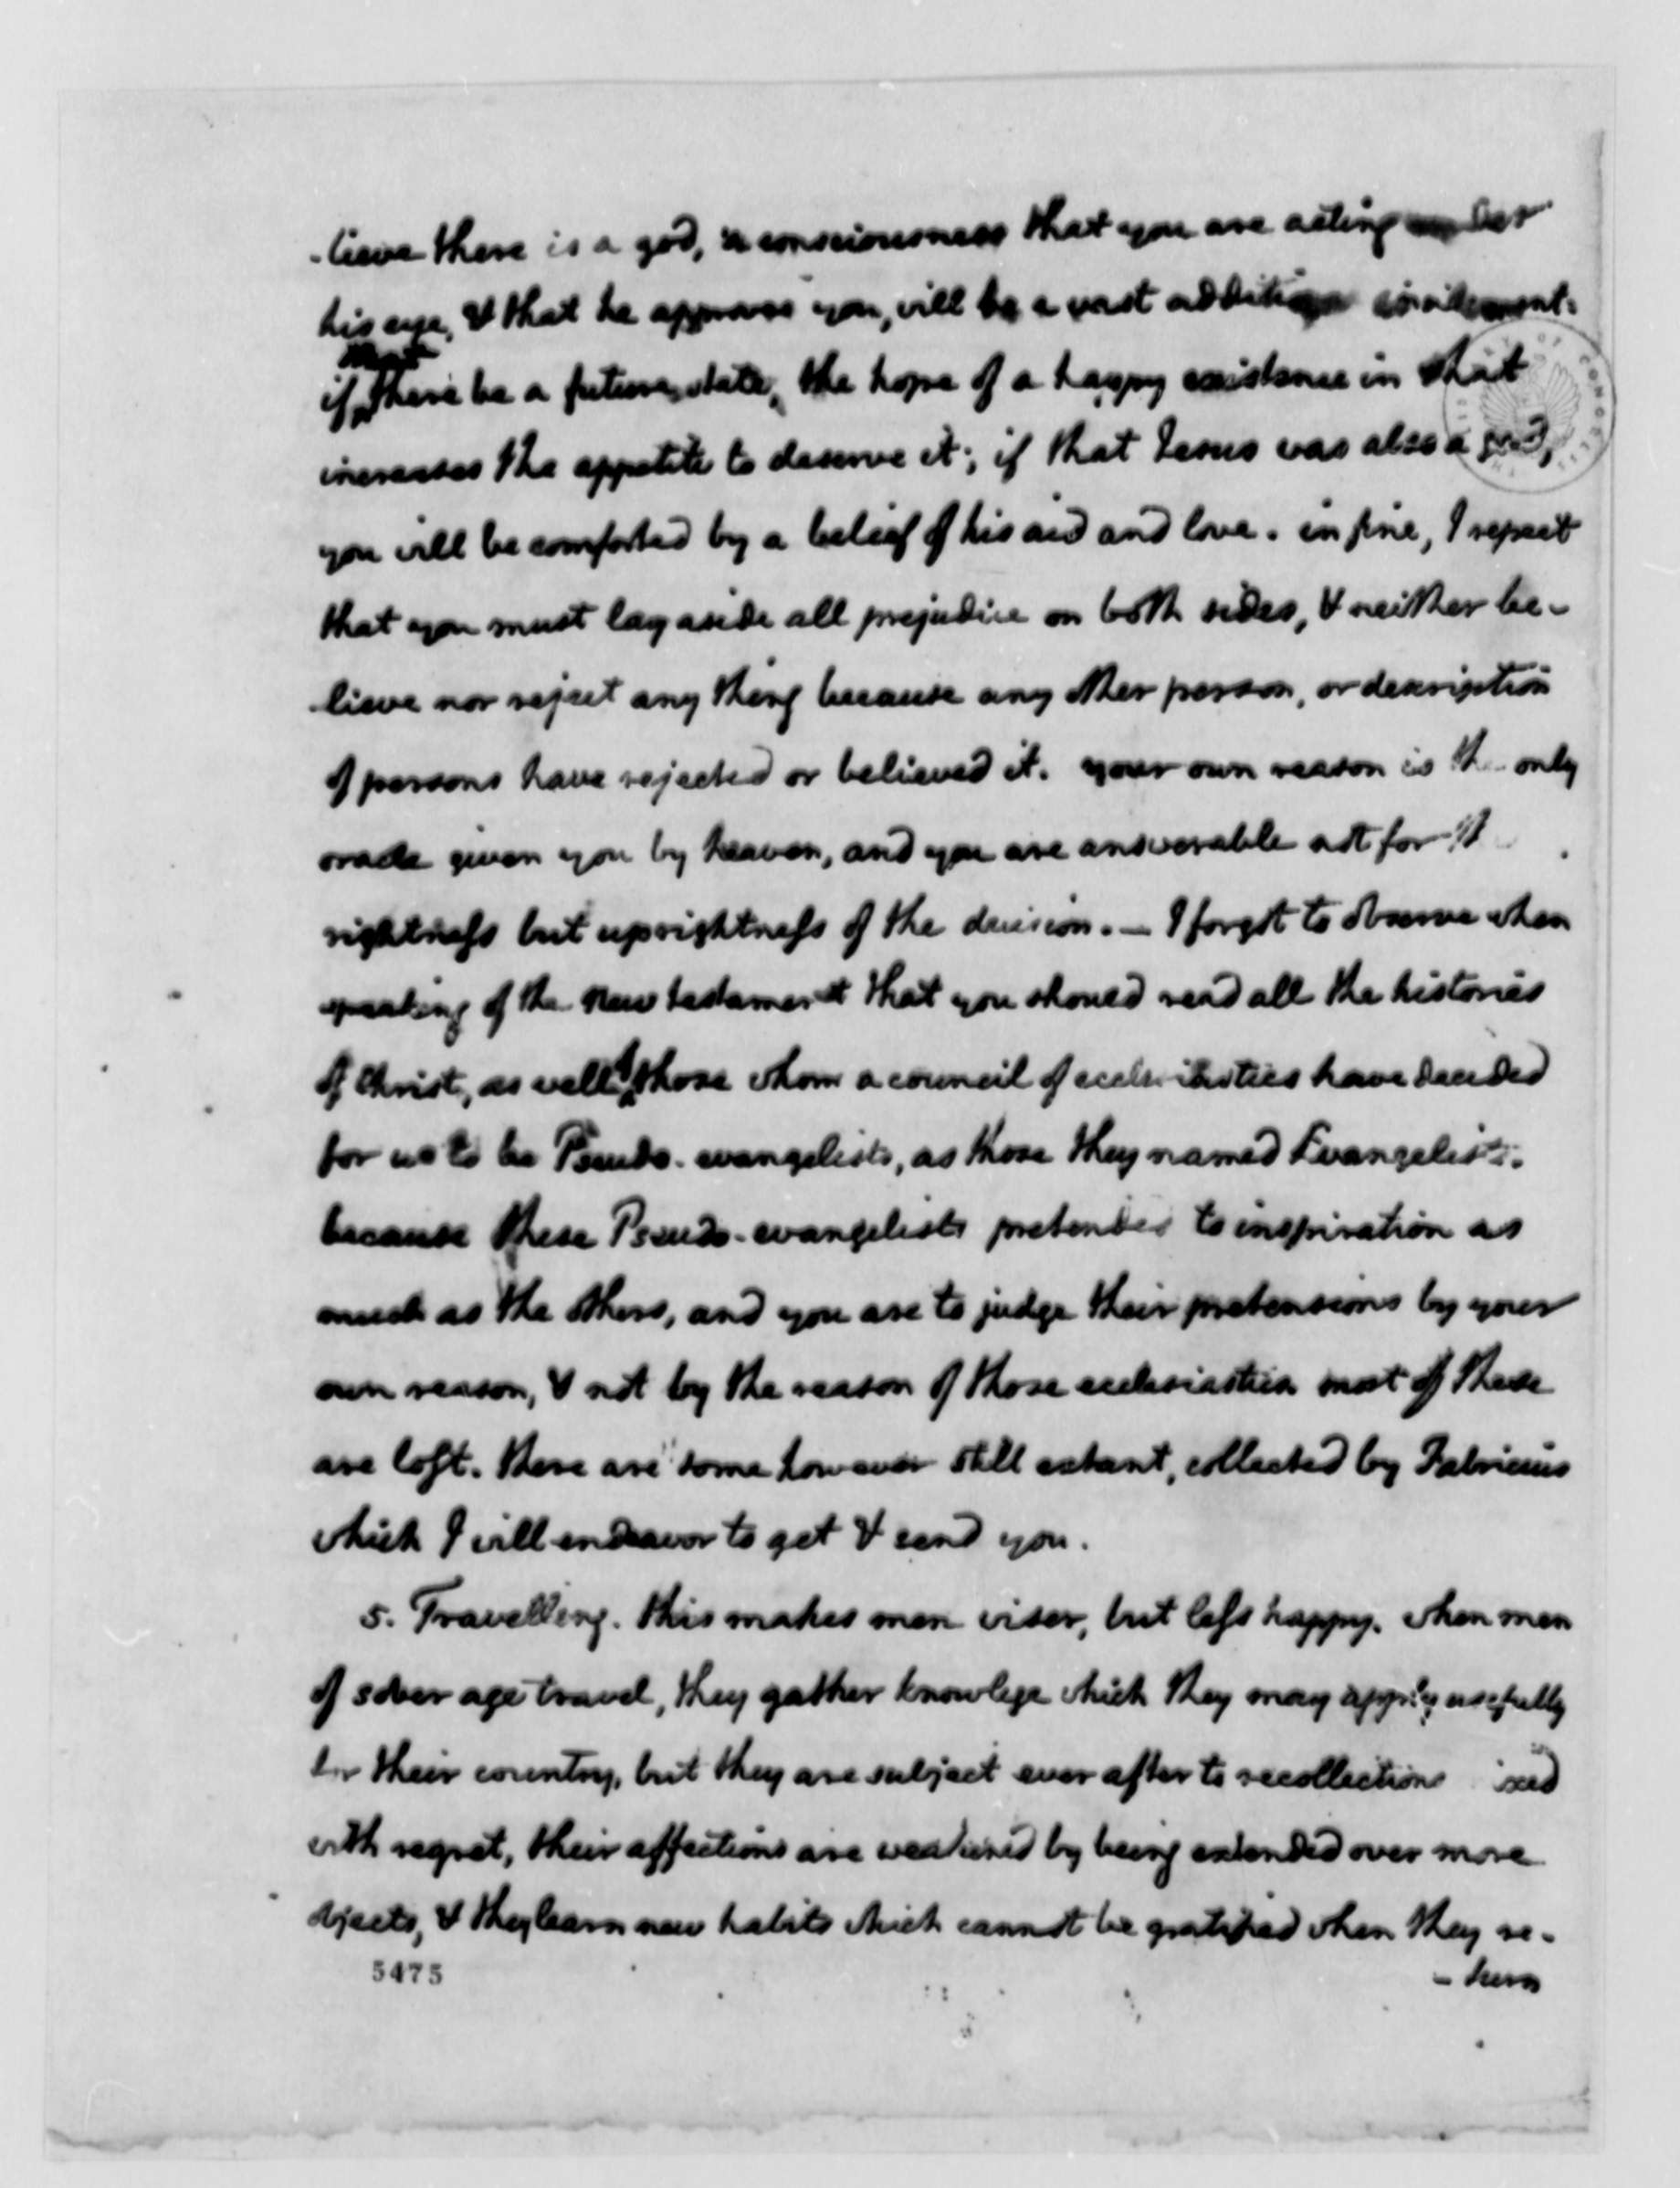 -lieve there is a god, a consciousness that you are acting under
his eye, & that he approves you, will be a vast additional incitement.
if that there be a future state, the hope of a happy existence in that
increases the appetite to deserve it; if that Jesus was also a god,
you will be comforted by a belief of his aid and love. in fine, I repeat
that you must lay aside all prejudice on both sides, & neither be-
lieve nor reject any thing because any other person, or description
of persons have rejected or believed it. your own reason is the only
oracle given you by heaven, and you are answerable not for the
rightness but uprightness of the decision. — I forgot to observe when
speaking of the New testament that you should read all the histories
of Christ, as well of those whom a council of ecclesiastics have decided
for us to be Pseudo-evangelists, as those they named Evangelists.
because these Pseudo-evangelists pretended to inspiration as
much as the others, and you are to judge their pretensions by your
own reason, & not by the reason of those ecclesiastics. most of these
are lost. there are some however still extant, collected by Fabricius
which I will endeavor to get & send you.
5. Travelling. this makes men wiser, but less happy. when men
of sober age travel, they gather knowlege which they may apply usefully
for their country, but they are subject ever after to recollections
with regret, their affections are weakened by being extended over more
objects, & they learn new habits which cannot be gratified when they re-
- turn
5475